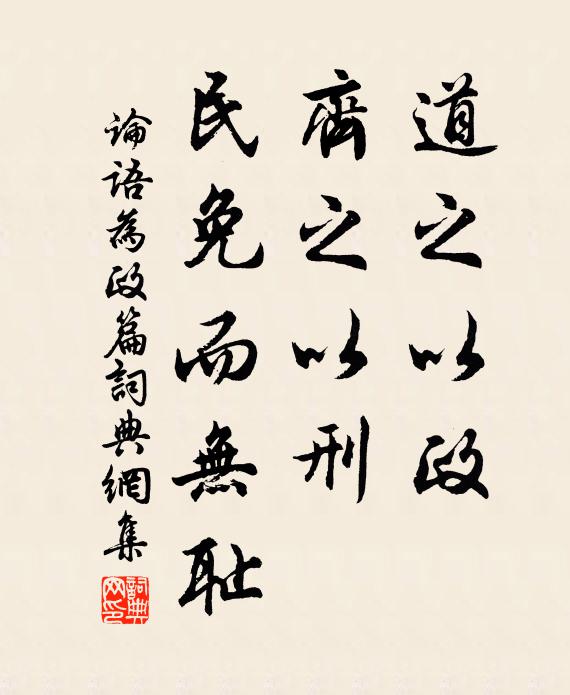 道之以政
齊之以刑
民免而無恥
論語為政篇詞典網集
詞典
网印